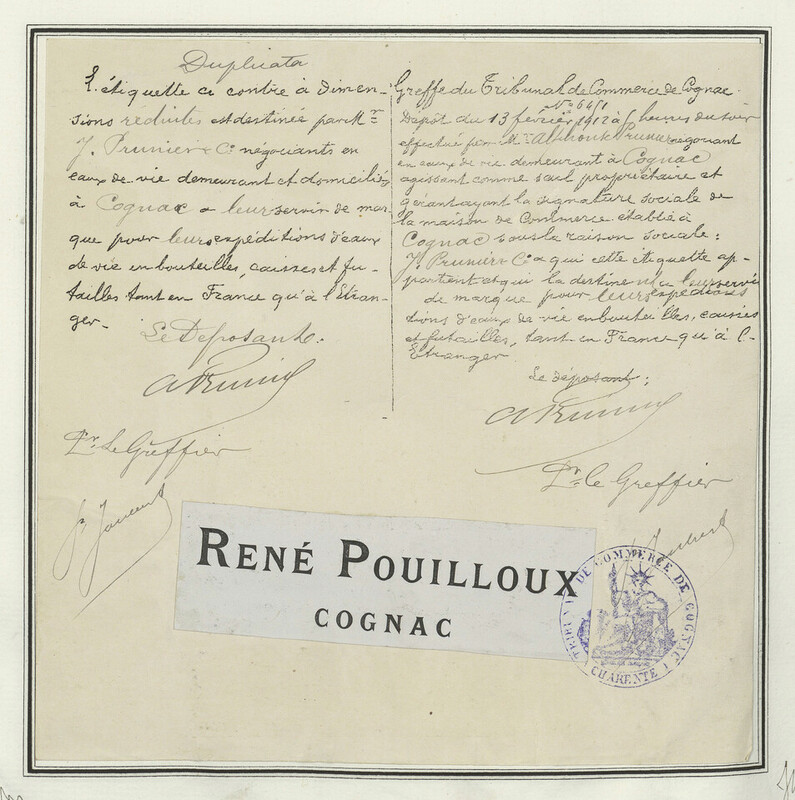 Duplicata
L'étiquette ci contre à dimen-
sions réduites est destinée par Mr
J. Prunier & Co négociants en
eaux de vie demeurant et domiciliés
à Cognac à leur servir de mar
que pour leurs expéditions d'eaux
de vie en bouteilles, caisses et fu-
tailles tant en France qu'à l'Etran-
ger.
Le Déposant.
A Prunier
Pr. Le Greffier
Greffe du Tribunal de Commerce de Cognac
No 6451
Dépôt du 13 février 1912 à 5 heures du soir
effectué par Mr Alphonse Prunier négociant
en eaux de vie demeurant à Cognac
agissant comme seul propriétaire et
gérant ayant la signature sociale de
la maison de Commerce établie à
Cognac sous la raison sociale:
J. Prunier & Co à qui cette étiquette ap-
partient et qui la destine à leur servir
de marque pour leurs expédi
tions d'eaux de vie en bouteilles, caisses
et futailles, tant en France qu'à l'-
Etranger
Le déposant:
A Prunier
Pr. le Greffier
RENÉ POUILLOUX
COGNAC
TRIBUNAL DE COMMERCE DE COGNAC
CHARENTE